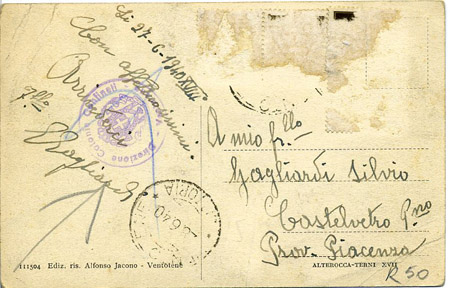 Li 27-6-1940 XVIII
Con affettuosissimi
Arrivederci
f.llo
Gagliardi
Direzione Colonia Confinati
A mio f.llo
Gagliardi Silvio
Castelvetro P.no
Prov. Piacenza
111504 Ediz. ris. Alfonso Jacono - Ventotene
ALTEROCCA-TERNI XVII
R 50